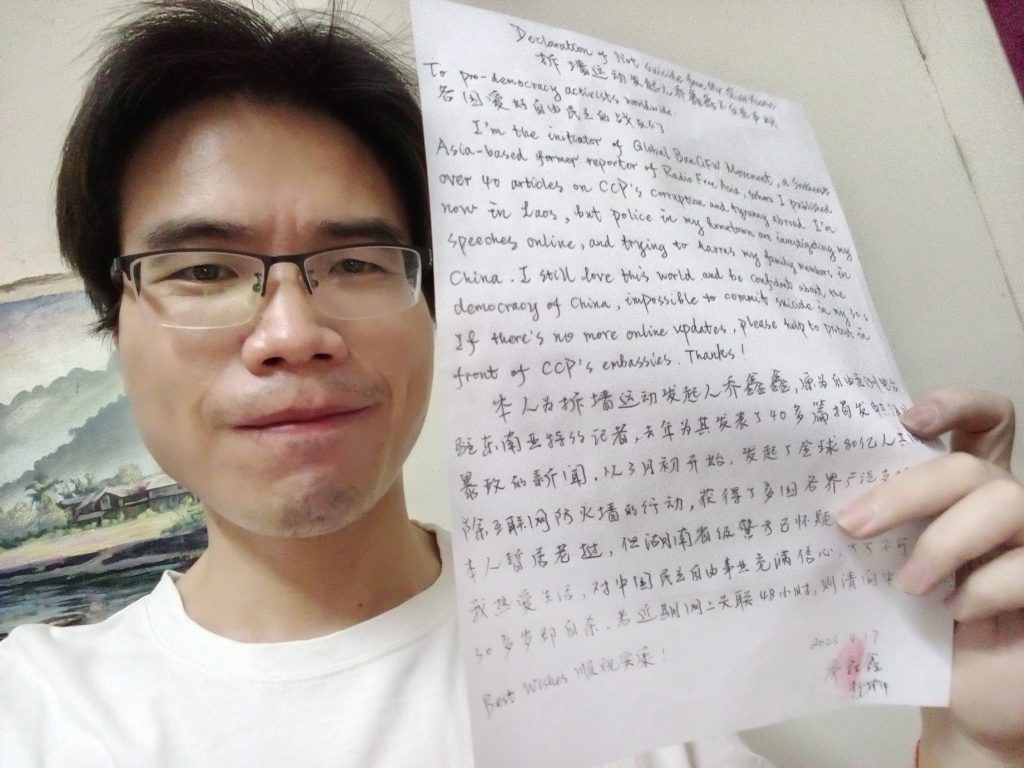 Declaration of Not suicide from the
拆墙运动发起人乔鑫鑫不自杀声明
To pro-democracy activists worldwide
各国爱好自由民主的战友们
I'm the initiator of Global BanGFW Movement, a Southeast
Asia-based former reporter of Radio Free Asia, where I published
over 40 articles on CCP's corruption and tyranny abroad. I'm
now in Laos, but police in my hometown are investigating my
speeches online, and trying to harres my family members in
China. I still love this world and be confident about the
democracy of China, impossible to commit suicide in my 30s
If there's no more online updates, please help to protest in
front of CCP's embassies. Thanks!
本人为拆墙运动发起人乔鑫鑫，原为自由亚洲电台
驻东南亚特约记者，去年为其发表了40多篇揭发
暴政的新闻。从3月初开始，发起了全球80亿人
除互联网防火墙的行动，获得了多国各界广泛
本人暂居老挝，但湖南省级警方已怀疑
我热爱生活，对中国民主自由事业充满信心，
30多岁即自杀。若近期网上失联48小时，则请向
Best Wishes 顺祝安康！
2023 4 17
乔鑫鑫